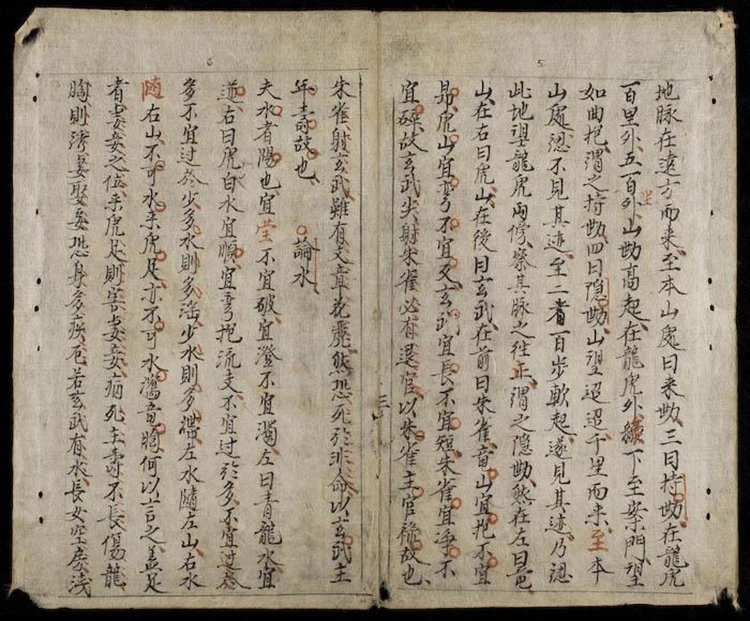 5
地脉在遠方而来至本山處曰来勢三曰持勢在龍虎
百里外五百里外山勢高起在龍虎外下至案門望
如曲抱謂之持勢四曰隐勢山望迢迢千里而来至本
山處總不見其迹至二者百步軟起遂見其迹乃
此地望龍虎兩傍察其脉之往正謂之隐勢然在左曰竜
山在右曰虎山在後曰玄武在前曰朱雀竜山宜抱不宜
昂虎山宜弯不宜反玄武宜長不宜短朱雀宜净不
宜故玄武尖射朱雀必有退官以朱雀主官禄故也
6
朱雀射玄武雖有文章花麗然恐死於非命以玄武主
年壽故也 論水
夫水者陽也宜莹不宜破宜澄不宜濁左曰青龍水宜
右曰虎白水宜順宜弯抱流交不宜过於多不宜过於
多不宜过於少多水則多淫少水則多滯左水随左山右水
随右山不可水乘虎足亦不可水蕩竜胸何以言之盖足
者妻妾之位乘虎足則害妻妾病死主壽不長傷龍
胸則妻娶妾恐身多疾危若玄武有水長女空房浅